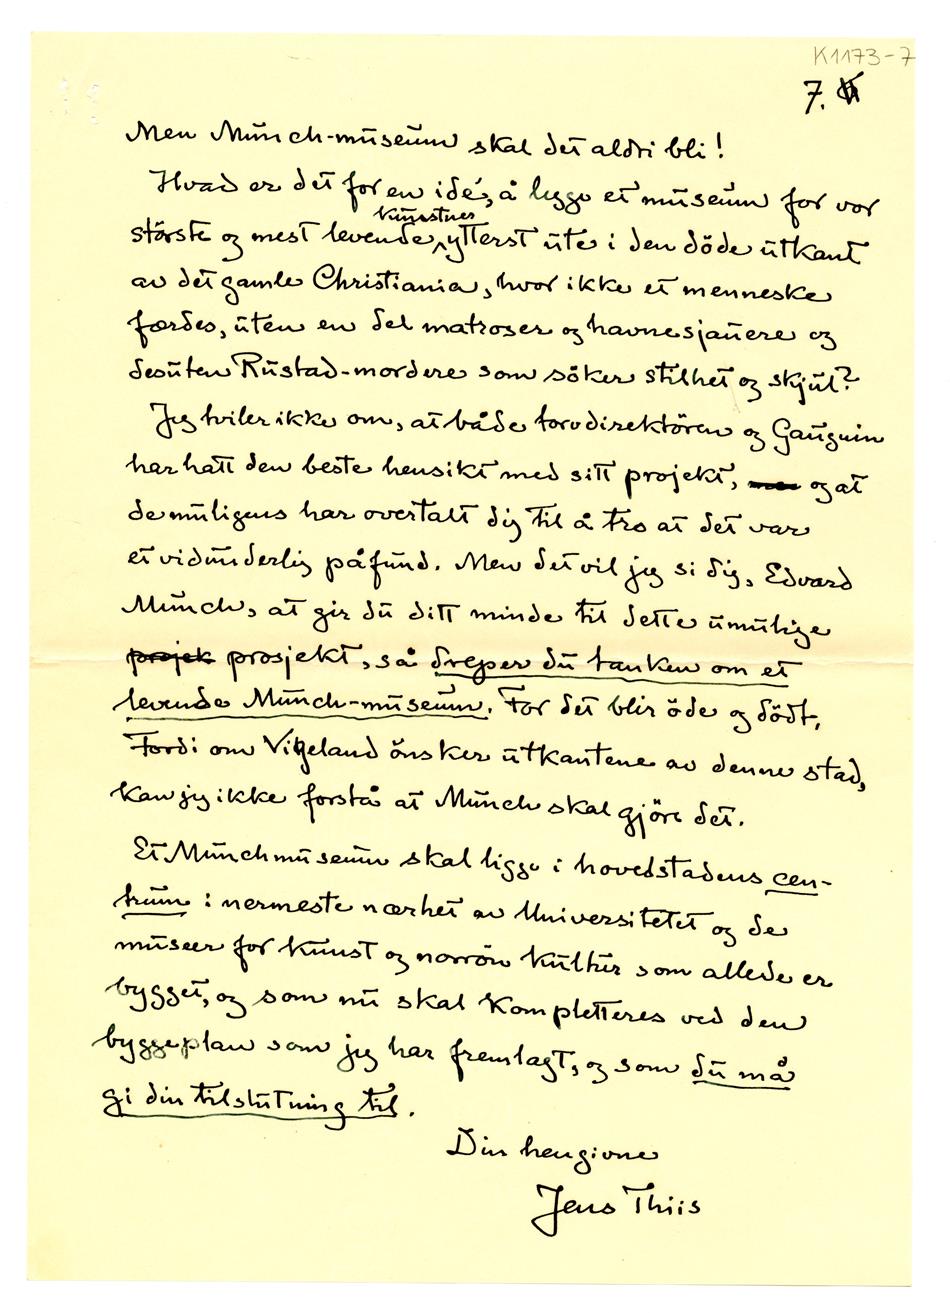 K1173-7
7.
Men Münch-müseüm skal det aldri bli!
Hvad er det for en idé, å legge et müseüm for vor
künstner
störste og mest levende ytterst üte i den döde ütkant
av det gamle Christiania, hvor ikke et menneske
færdes, üten en del matroser og havnesjauere og
desüten Rüstad-mordere som söker stilhet og skjül?
Jeg tviler ikke om, at både torvdirektören og Gaüguin
har hatt den beste hensikt med sitt projekt, og at
de müligens har overtalt dig til å tro at det var
et vidünderlig påfünd. Men det vil jeg si dig, Edvard
Münch, at gir dü ditt minde til dette ümülige
projek prosjekt, så dreper dü tanken om et
levende Münch-müseüm. For det blir öde og dödt.
Fordi om Vigeland önsker ütkantene av denne stad,
kan jeg ikke forstå at Münch skal gjöre det.
Et Münchmüseüm skal ligge i hovedstadens cen-
trüm i nermeste nærhet av Universitetet og de
müseer for künst og norrön kültür som allede er
bygget, og som nü skal kompletteres ved den
byggeplan som jeg har fremlagt, og som dü må
gi din tilslütning til.
Din hengivne
Jens Thiis